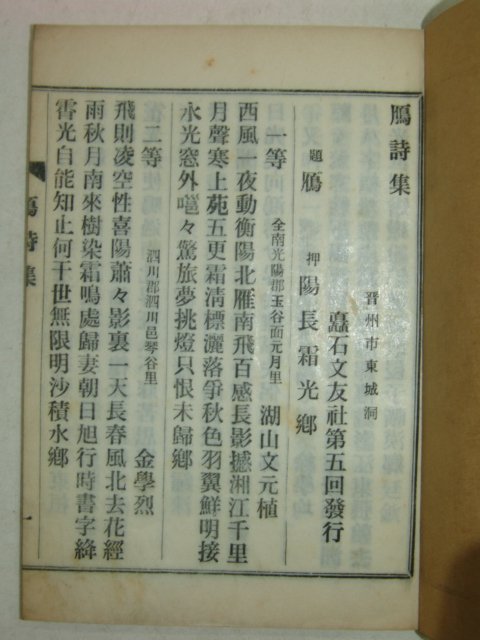 鴈詩集
晋州市東城洞
矗石文友社第五回發行
題 鴈 押 陽長霜光鄕
一等 全南光陽郡玉谷面元月里 湖山文元植
西風一夜動衡陽北雁南飛百感長影撼湘江千里
月聲寒上苑五更霜淸標灑落爭秋色羽翼鮮明接
水光窓外嗈々驚旅夢挑燈只恨未歸鄕
二等 泗川郡泗川邑琴谷里 金學烈
飛則凌空性喜陽蕭々影裏一天長春風北去花經
雨秋月南來樹染霜鳴處歸妻朝日旭行時書字絳
霄光自能知止何干世無限明沙積水鄕
鴈詩集
一